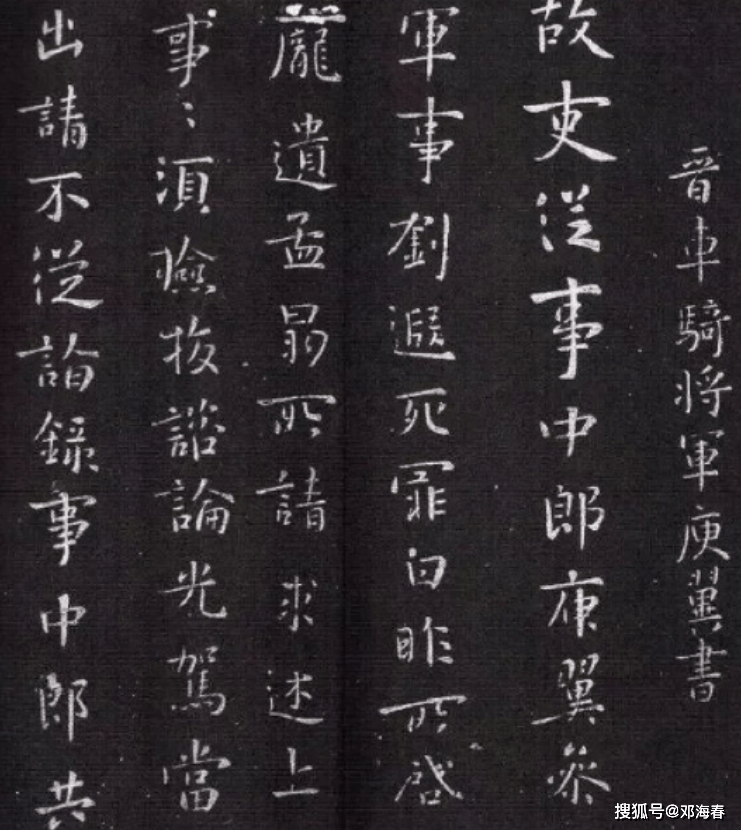 晉車騎將軍庾翼書
故吏從事中郎庾翼參
軍事劉遐死罪白昨所啓
龐遺孟所請求述上
事〻須諮論光駕當
出請不從錄事中郎共
搜狐号@邓海春